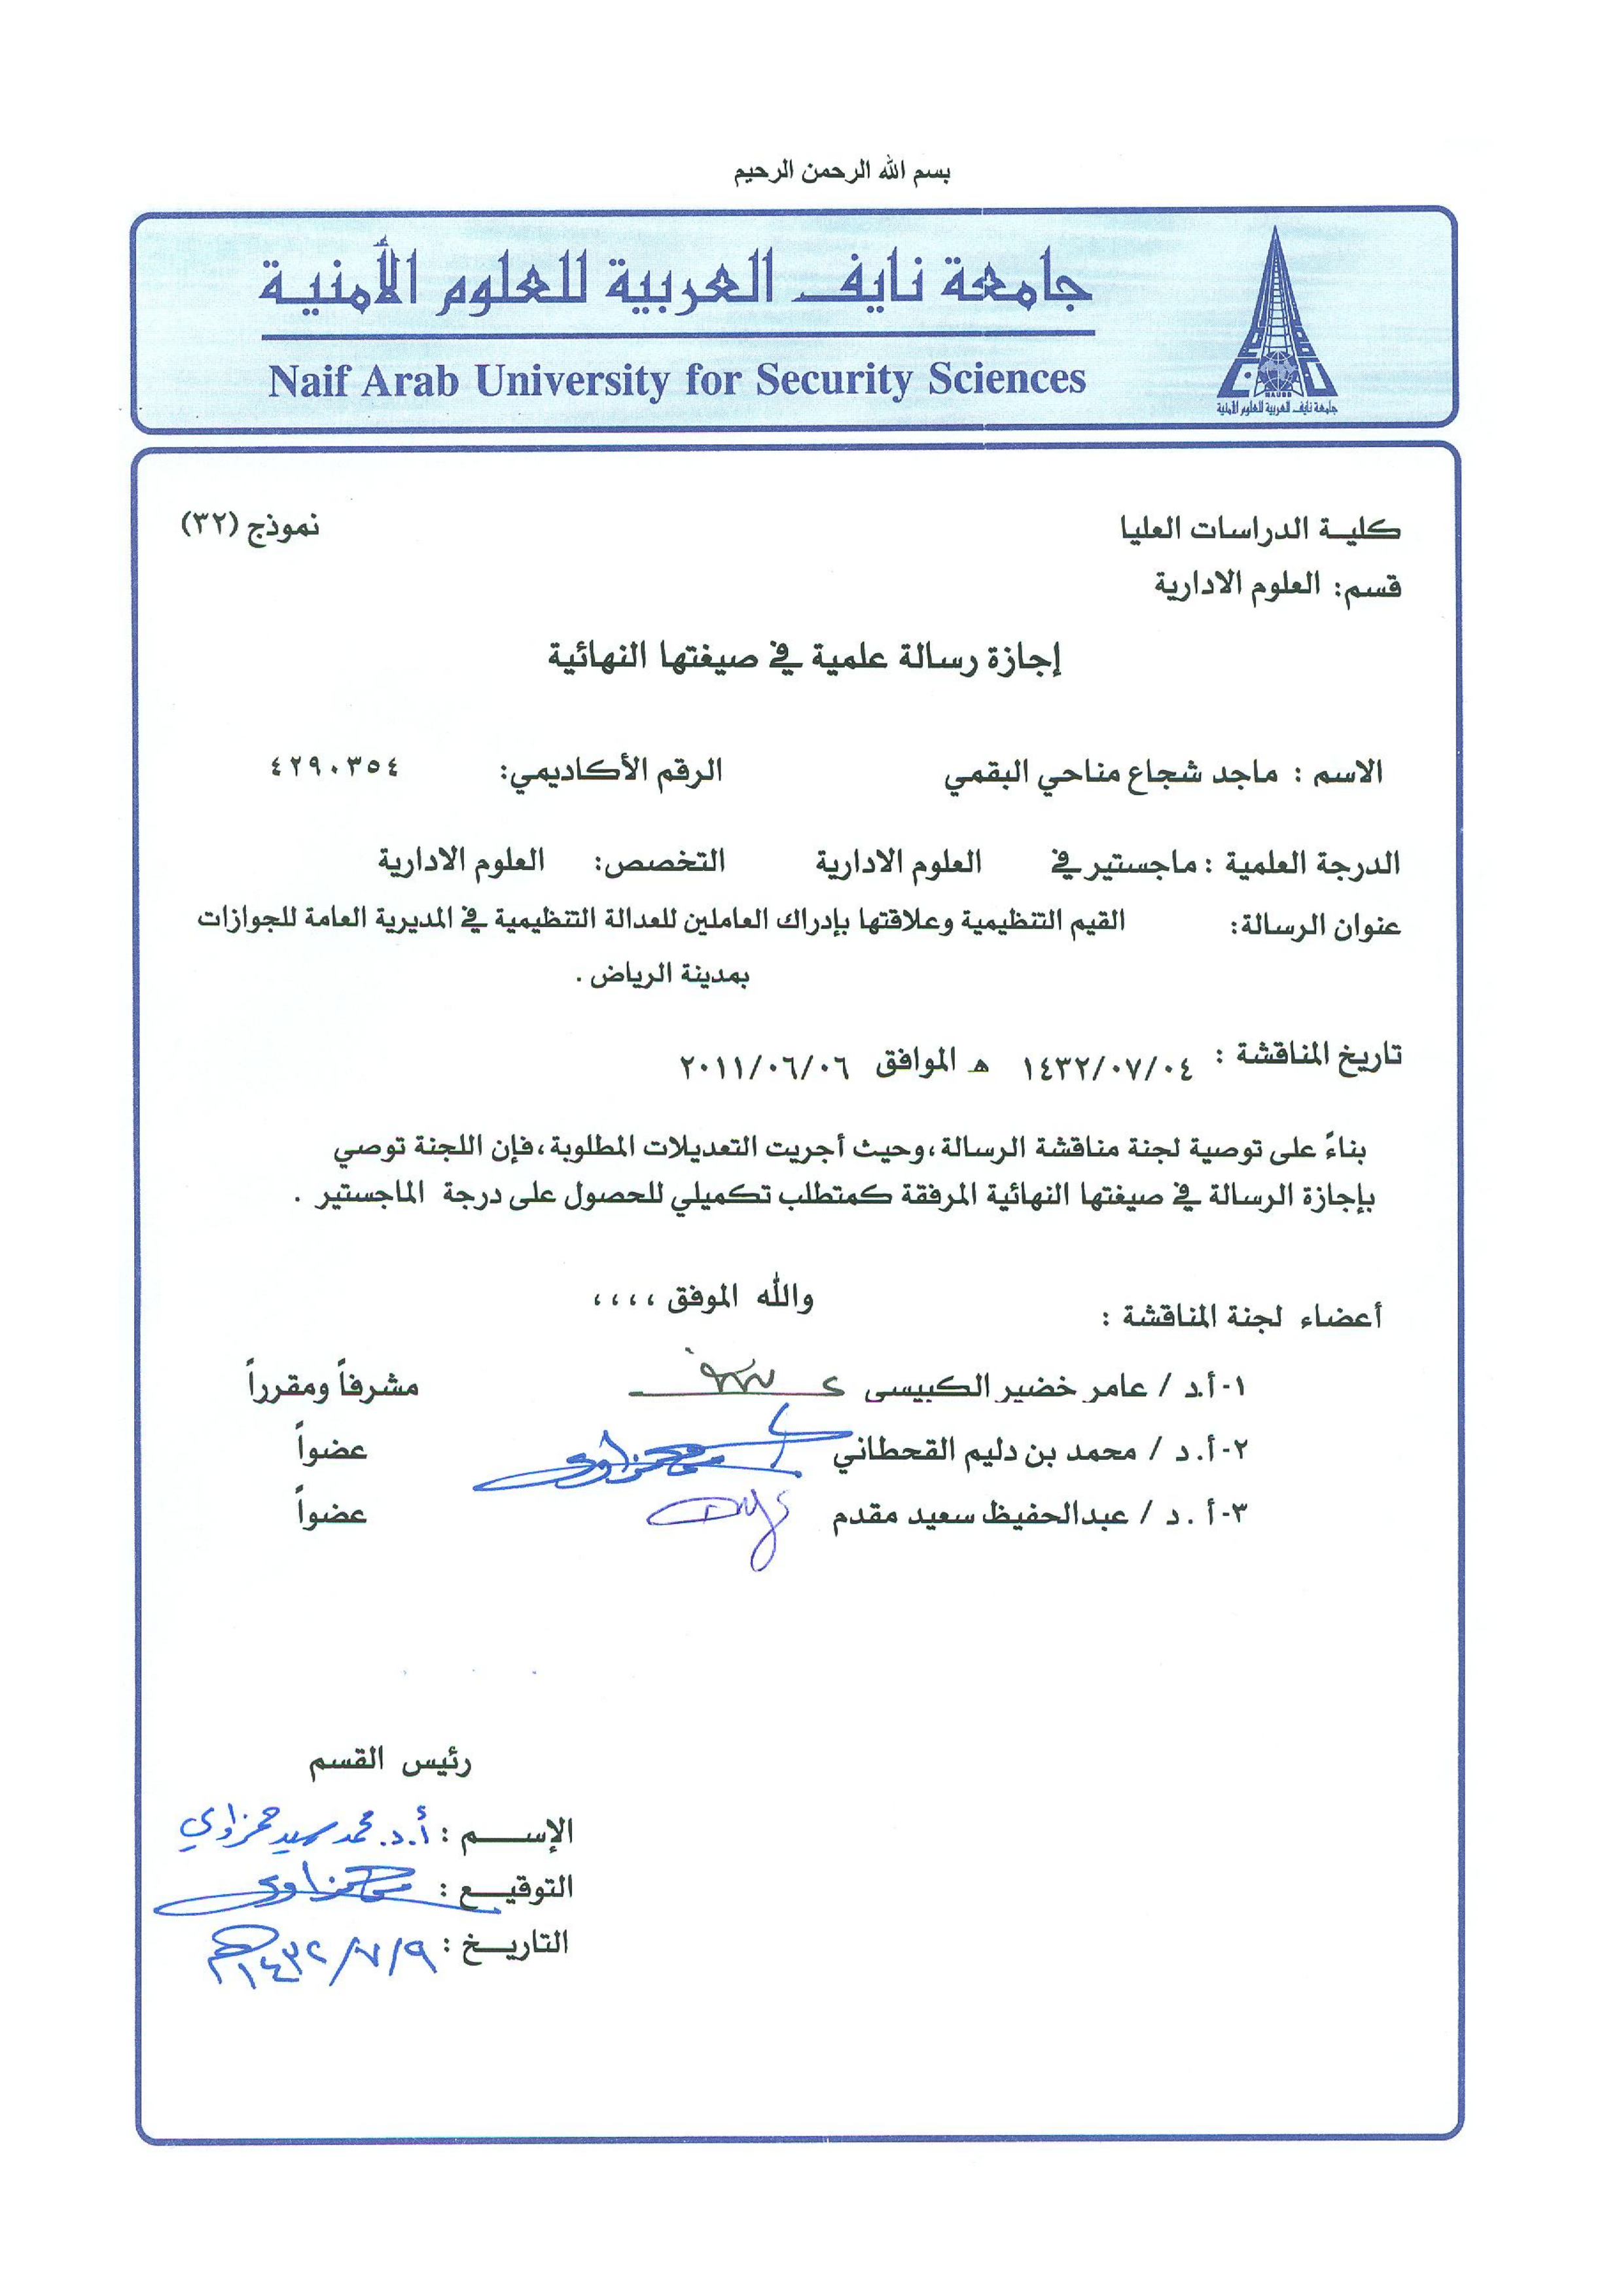 بسم الله الرحمن الرحيم
جامعة نايف العربية للعلوم الأمنية
Naif Arab University for Security Sciences
NAUSS
جامعة نايف العربية للعلوم الأمنية
كليـة الدراسات العليا
نموذج (٣٢)
قسم: العلوم الادارية
إجازة رسالة علمية في صيغتها النهائية
الاسم : ماجد شجاع مناحي البقمي الرقم الأكاديمي: ٤٢٩٠٣٥٤
الدرجة العلمية : ماجستير في العلوم الادارية التخصص: العلوم الادارية
عنوان الرسالة: القيم التنظيمية وعلاقتها بإدراك العاملين للعدالة التنظيمية في المديرية العامة للجوازات
بمدينة الرياض .
تاريخ المناقشة : ١٤٣٢/٠٧/٠٤ هـ الموافق ٢٠١١/٠٦/٠٦
بناءً على توصية لجنة مناقشة الرسالة، وحيث أجريت التعديلات المطلوبة، فإن اللجنة توصي
بإجازة الرسالة في صيغتها النهائية المرفقة كمتطلب تكميلي للحصول على درجة الماجستير .
والله الموفق ،،،،
أعضاء لجنة المناقشة :
١- أ.د / عامر خضير الكبيسى مشرفاً ومقرراً
٢- أ.د / محمد بن دليم القحطاني عضواً
٣- أ . د / عبدالحفيظ سعيد مقدم عضواً
رئيس القسم
الإســـم : أ.د. محمد سيد حمزاوي
التوقيـــع :
التاريـــخ : ١٤٣٢/٧/٩هـ